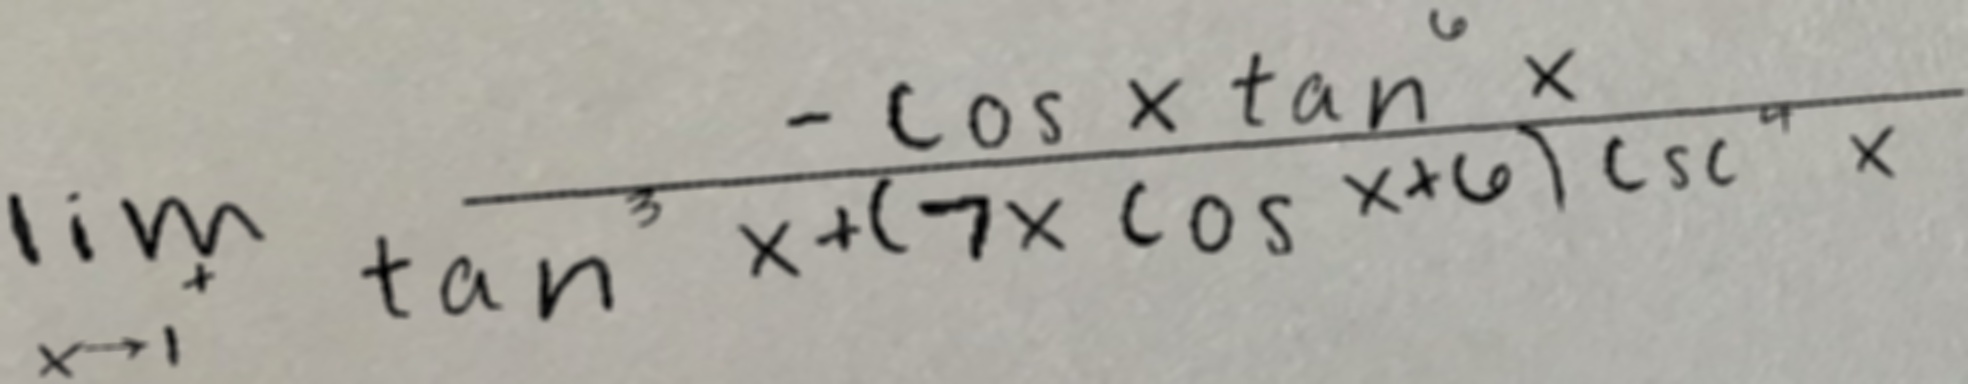 lim x→1⁺ (- cos x tan⁶ x) / (tan³ x + (7x cos x + 6) csc⁴ x)